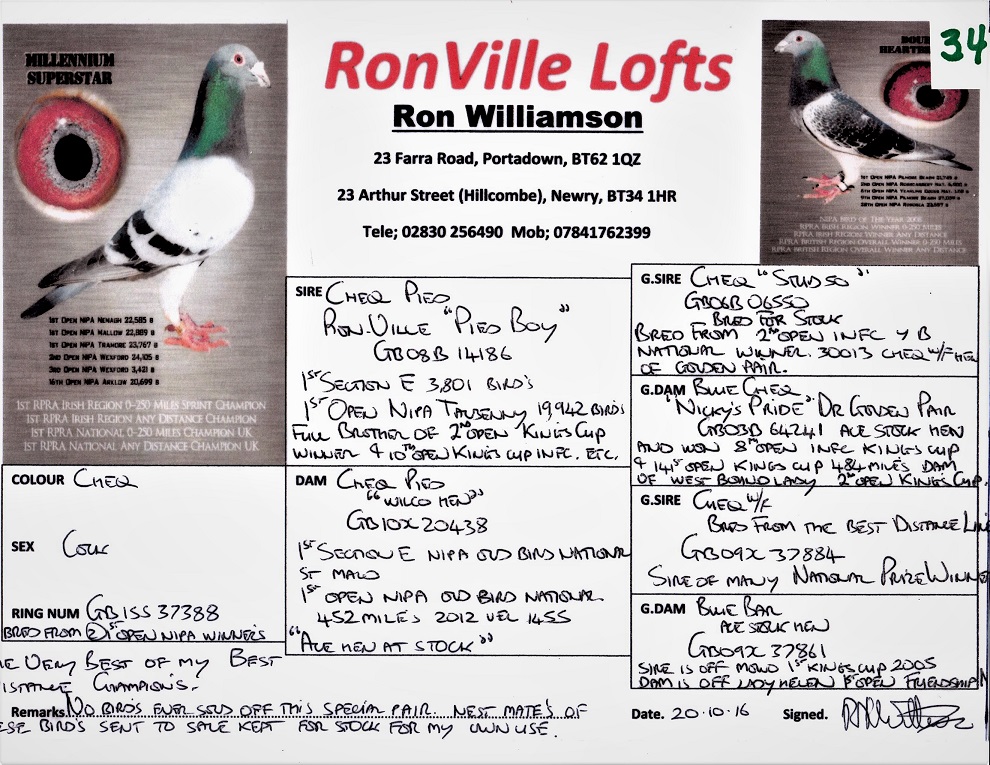 34
MILLENNIUM
SUPERSTAR
1ST OPEN NIPA NENAGH 22,585 B
1ST OPEN NIPA MALLOW 22,889 B
1ST OPEN NIPA TRAMORE 23,767 B
2ND OPEN NIPA WEXFORD 24,105 B
3RD OPEN NIPA WEXFORD 3,421 B
16TH OPEN NIPA ARKLOW 20,699 B
1ST RPRA IRISH REGION 0-250 MILES SPRINT CHAMPION
1ST RPRA IRISH REGION ANY DISTANCE CHAMPION
1ST RPRA NATIONAL 0-250 MILES CHAMPION UK
1ST RPRA NATIONAL ANY DISTANCE CHAMPION UK
RonVille Lofts
Ron Williamson
23 Farra Road, Portadown, BT62 1QZ
23 Arthur Street (Hillcombe), Newry, BT34 1HR
Tele; 02830 256490 Mob; 07841762399
NIPA BIRD OF THE YEAR
RPRA IRISH REGION WINNER 0-250 MILES
RPRA IRISH REGION WINNER ANY DISTANCE
RPRA BRITISH REGION OVERALL WINNER 0-250 MILES
RPRA BRITISH REGION OVERALL WINNER ANY DISTANCE
COLOUR CHEQ
SEX COCK
RING NUM GB15S 37388
BRED FROM 2 1ST OPEN NIPA WINNERS
VERY BEST OF MY BEST
CHAMPION'S.
SIRE CHEQ PIED
RON.VILLE "PIED BOY"
GB08B 14186
1ST SECTION E 3,801 BIRD'S
1ST OPEN NIPA 19,942 BIRDS
FULL BROTHER OF 2ND OPEN KING'S CUP
WINNER & 10TH OPEN KINGS CUP INFC. ETC.
DAM CHEQ PIED
"WILCO HEN"
GB10X 20438
1ST SECTION E NIPA OLD BIRD NATIONAL
ST MALO
1ST OPEN NIPA OLD BIRD NATIONAL
452 MILES 2012 VEL 1455
"ACE HEN AT STOCK"
G.SIRE CHEQ "STUD 50"
GB06B 06550
BRED FOR STOCK
BRED FROM 2ND OPEN INFC Y B
NATIONAL WINNER. 30013 CHEQ W/F HEN
OF GOLDEN PAIR.
G.DAM BLUE CHEQ
"NICKY'S PRIDE" DR GOLDEN PAIR
GB03B 64241 ACE STOCK HEN
AND WON 8TH OPEN INFC KINGS CUP
& 141ST OPEN KINGS CUP 484 MILES DAM
OF WEST BOUND LADY 2ND OPEN KING'S CUP.
G.SIRE CHEQ W/F
BRED FROM THE BEST DISTANCE
GB09X 37884
SIRE OF MANY NATIONAL PRIZE
G.DAM BLUE BAR
ACE STOCK HEN
GB09X 37861
SIRE IS OFF 1ST KINGS CUP 2005
DAM IS OFF LADY HELEN 1ST OPEN FRIENDSHIP
Remarks NO BIRD'S EVER SOLD OFF THIS SPECIAL PAIR. NEST MATE'S OF
BIRD'S SENT TO SALE KEPT FOR STOCK FOR MY OWN USE.
Date. 20.10.16 Signed.